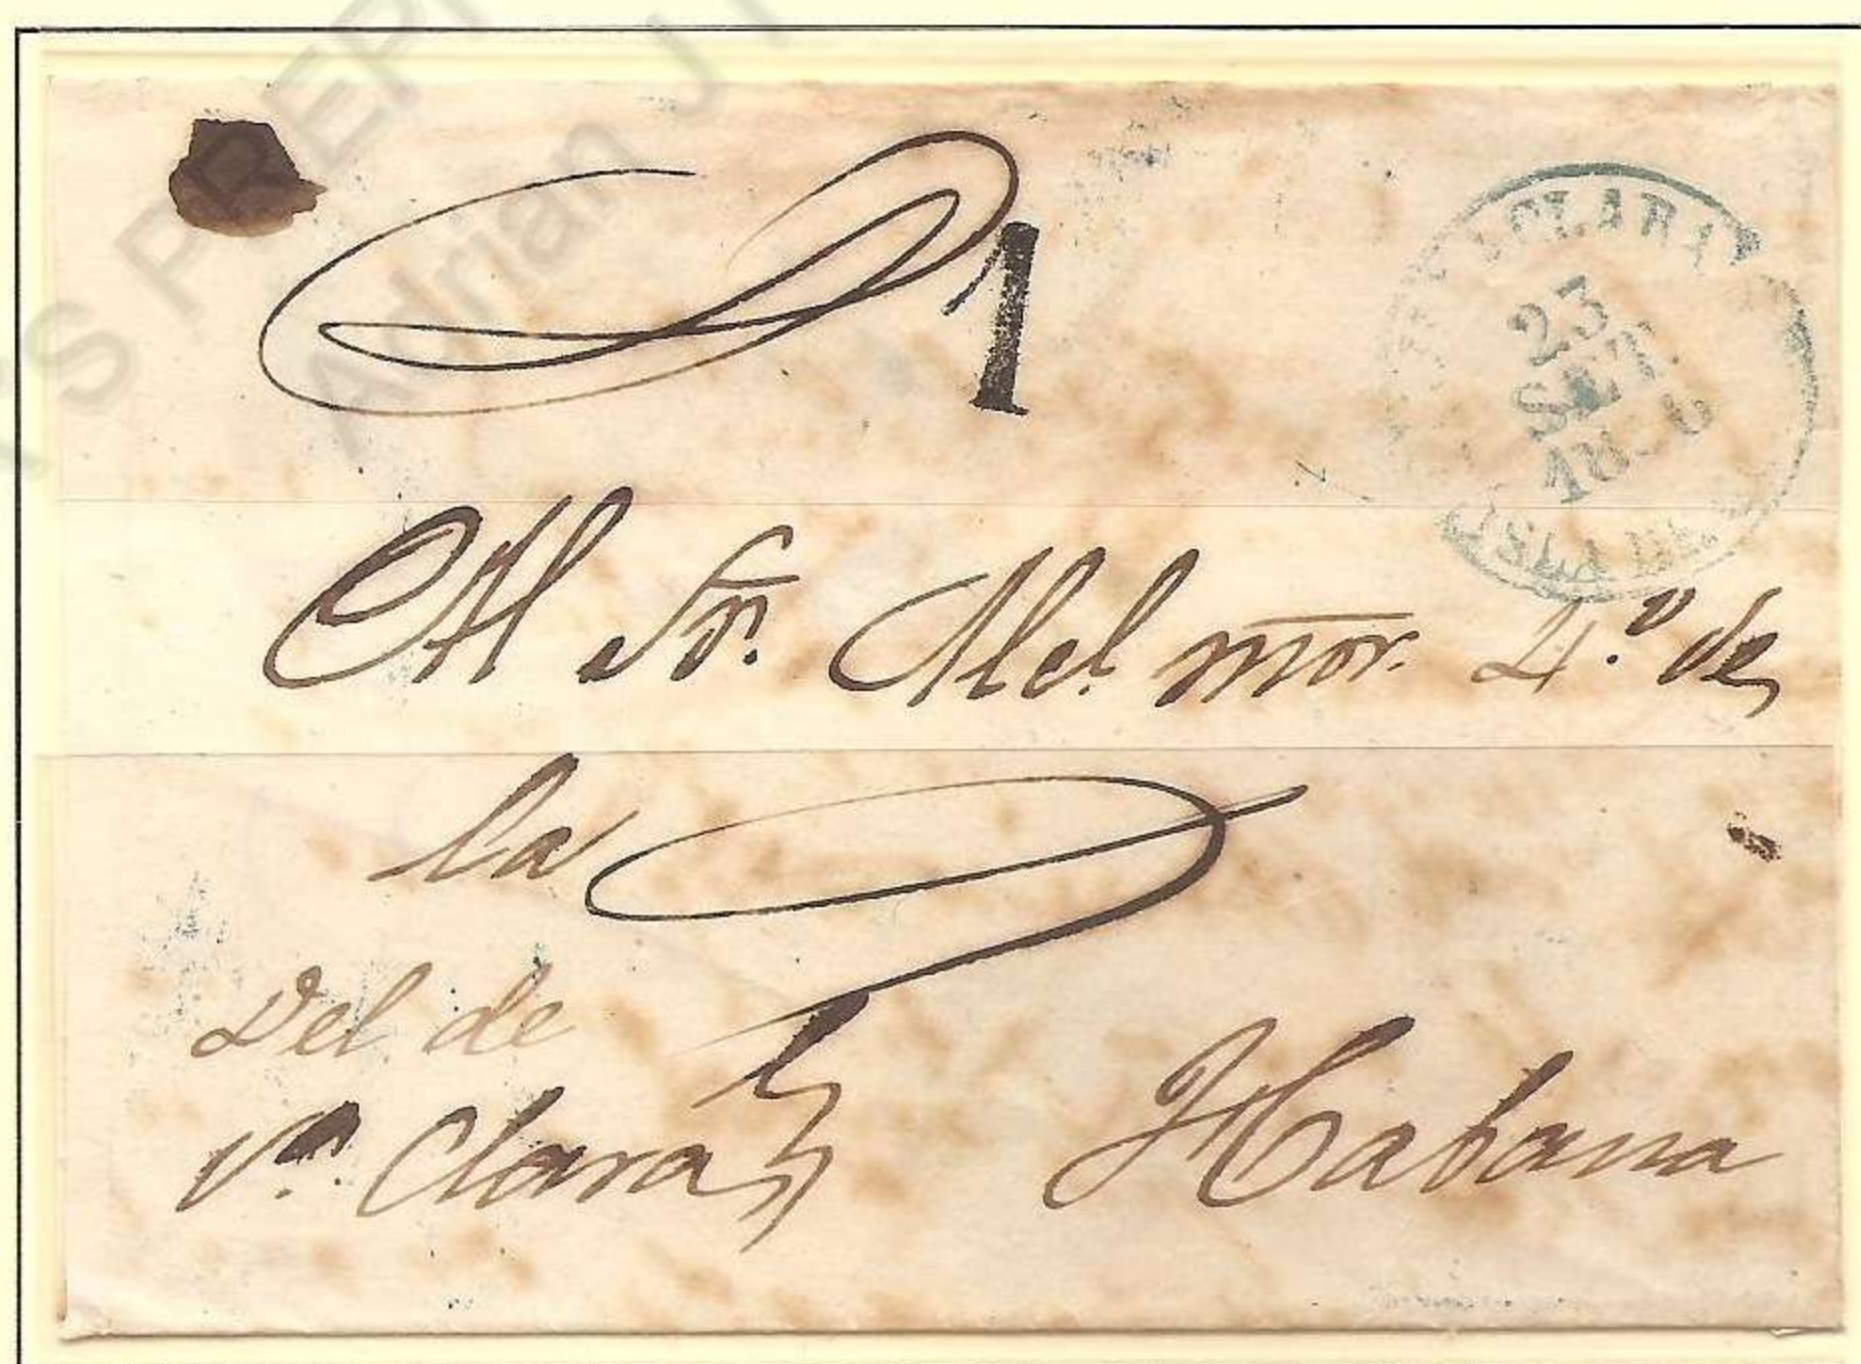 Adrian J
1
CLARA
23
SET
ISLA DE
Al Sr. Alcl. mōr. 4.º de
la
Del. de
Vª. Clara
Habana